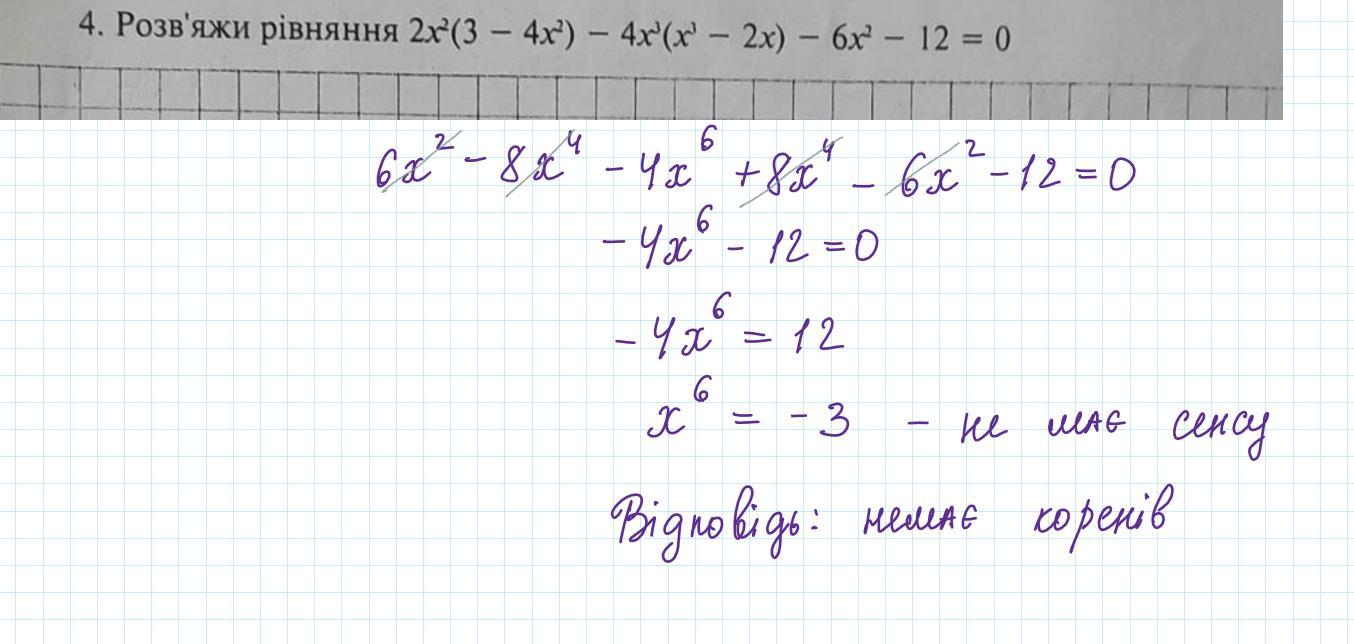 4. Розв'яжи рівняння 2x²(3 − 4x²) − 4x³(x³ − 2x) − 6x² − 12 = 0
6x² − 8x⁴ − 4x⁶ + 8x⁴ − 6x² − 12 = 0
− 4x⁶ − 12 = 0
− 4x⁶ = 12
x⁶ = − 3 − не має сенсу
Відповідь: немає коренів